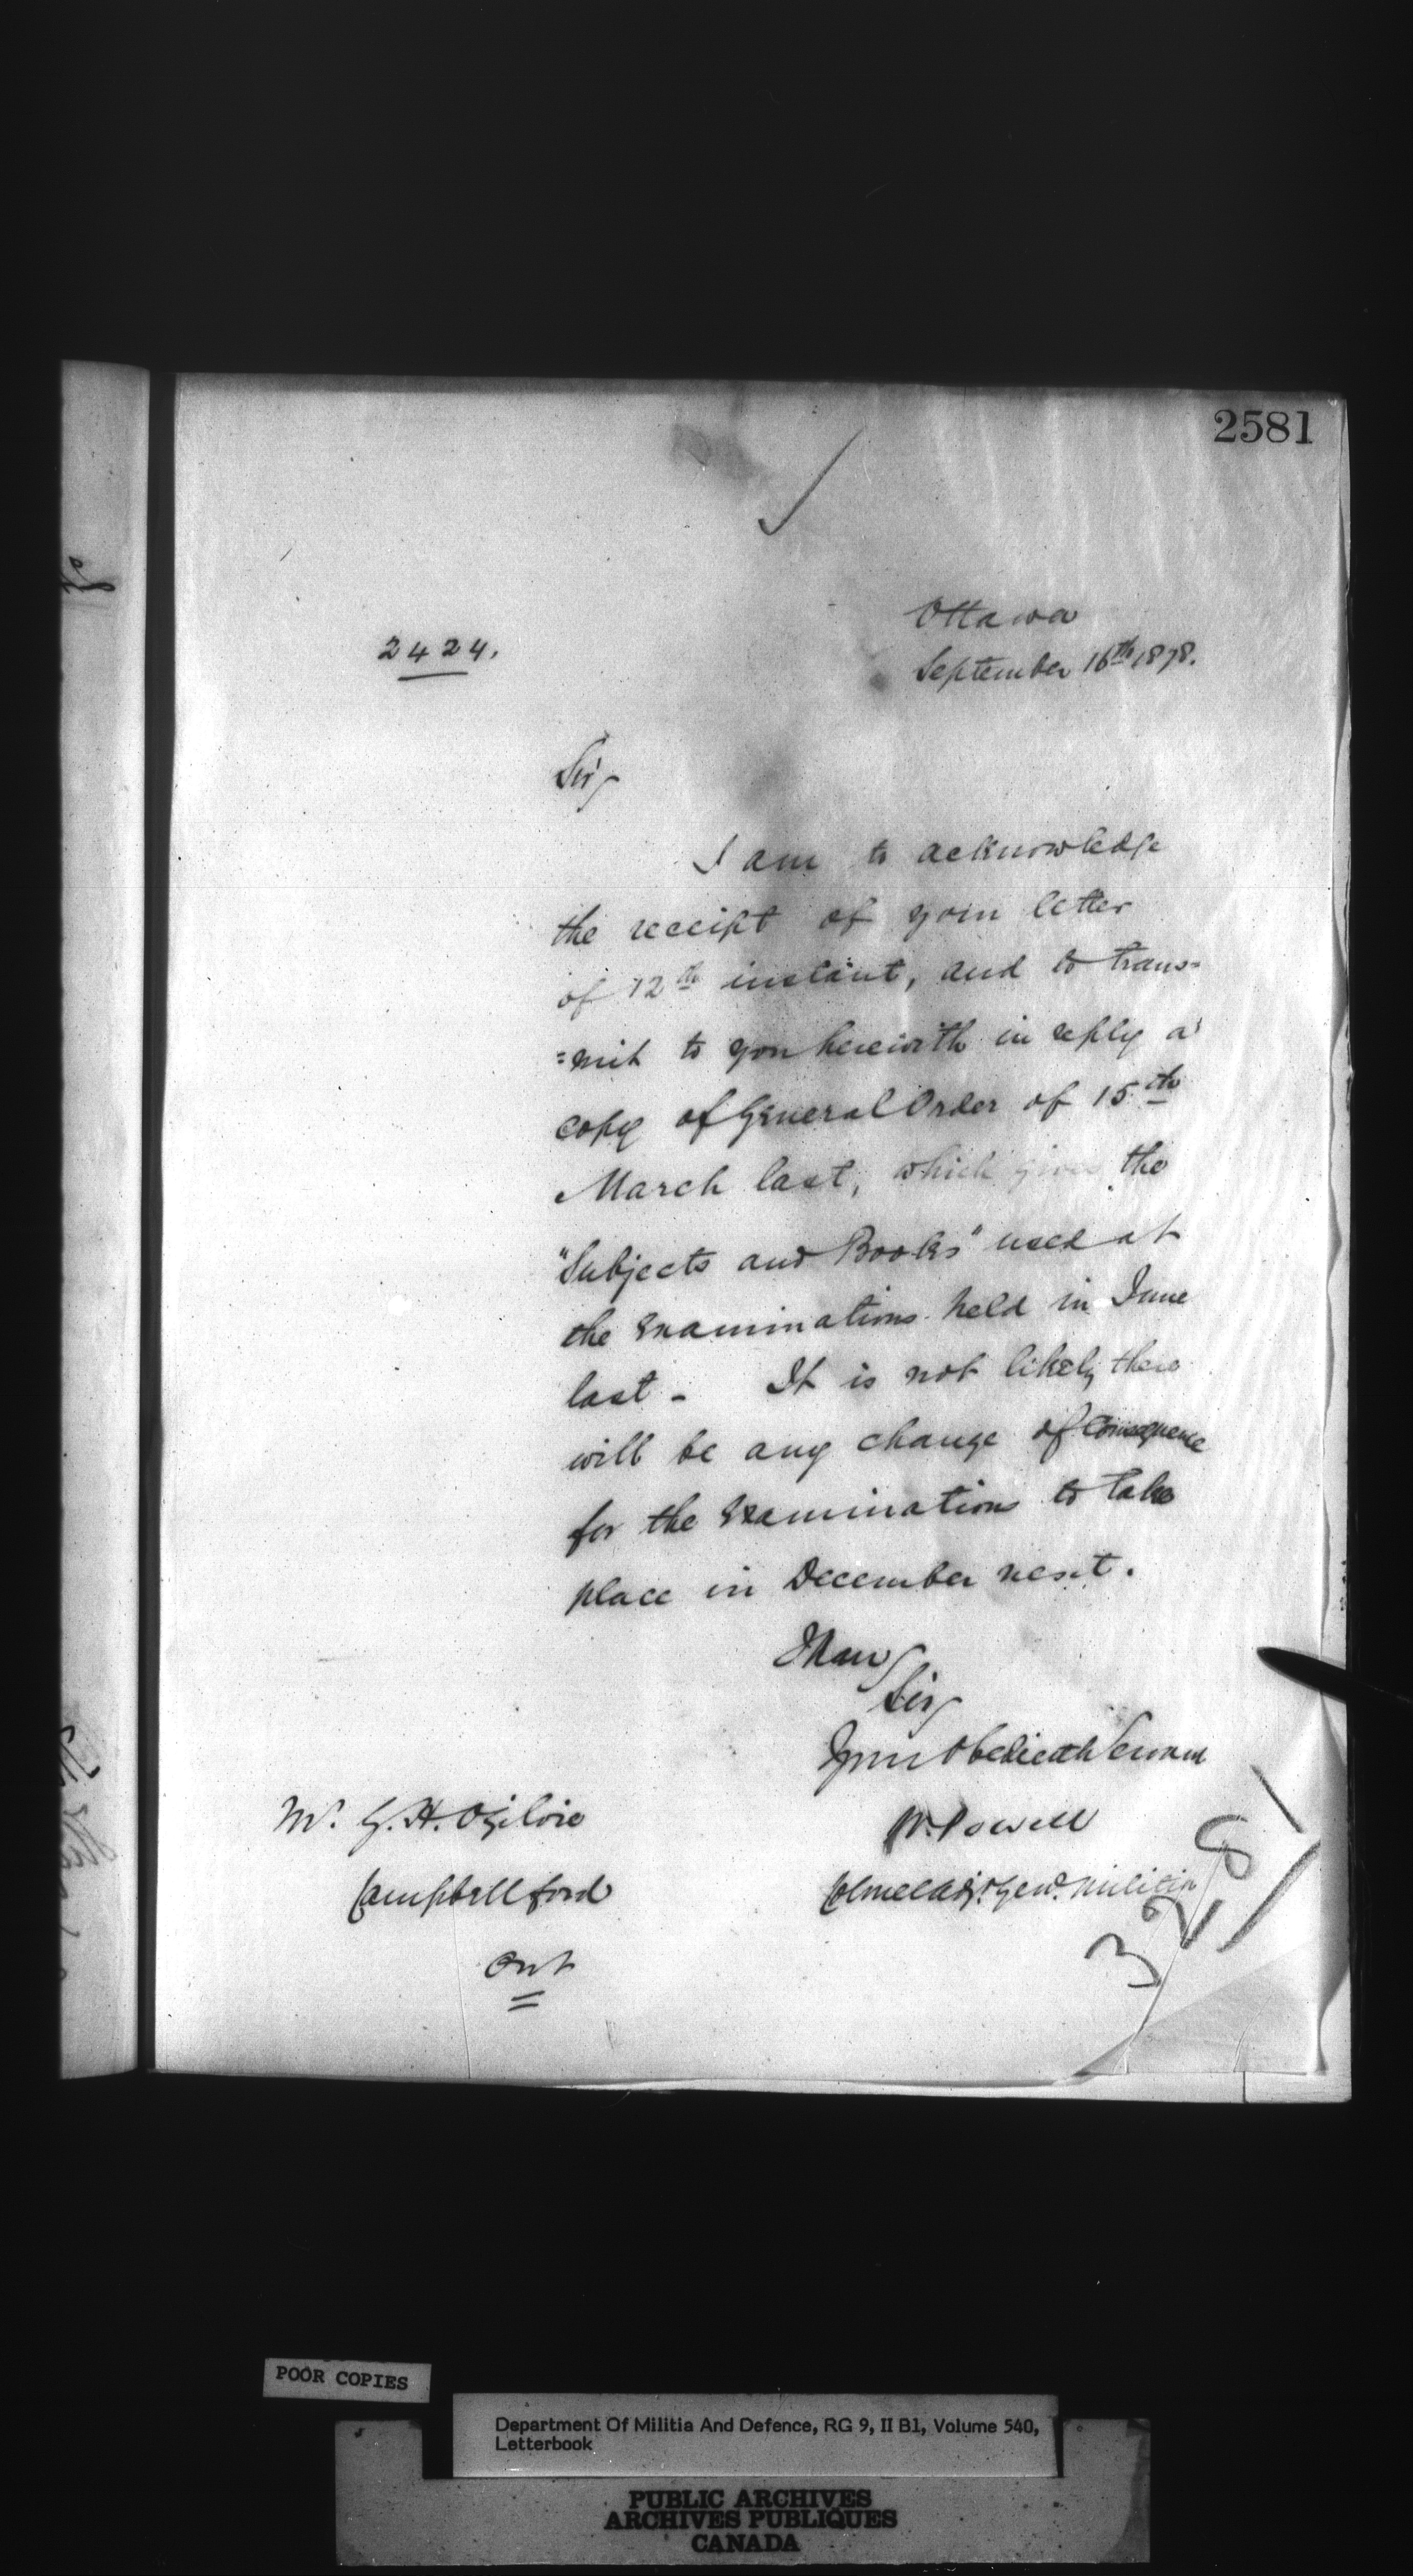 2581
Ottawa
2424.
September 16th 1878.
Sir,
I am to acknowledge
the receipt of your letter
of 12th instant, and to trans=
=mit to you herewith in reply a
copy of General Order of 15th
March last, which gives the
"Subjects and Books" used at
the Examinations held in June
last - It is not likely there
will be any change of Consequence
for the Examinations to take
place in December next.
Sir,
Your Obedient Servant
Mr. G. H. Ogilvie
W. Powell
Campbellford
Colonel Adjt. Genl. Militia
Ont
POOR COPIES
Department Of Militia And Defence, RG 9, II B1, Volume 540,
Letterbook
PUBLIC ARCHIVES
ARCHIVES PUBLIQUES
CANADA